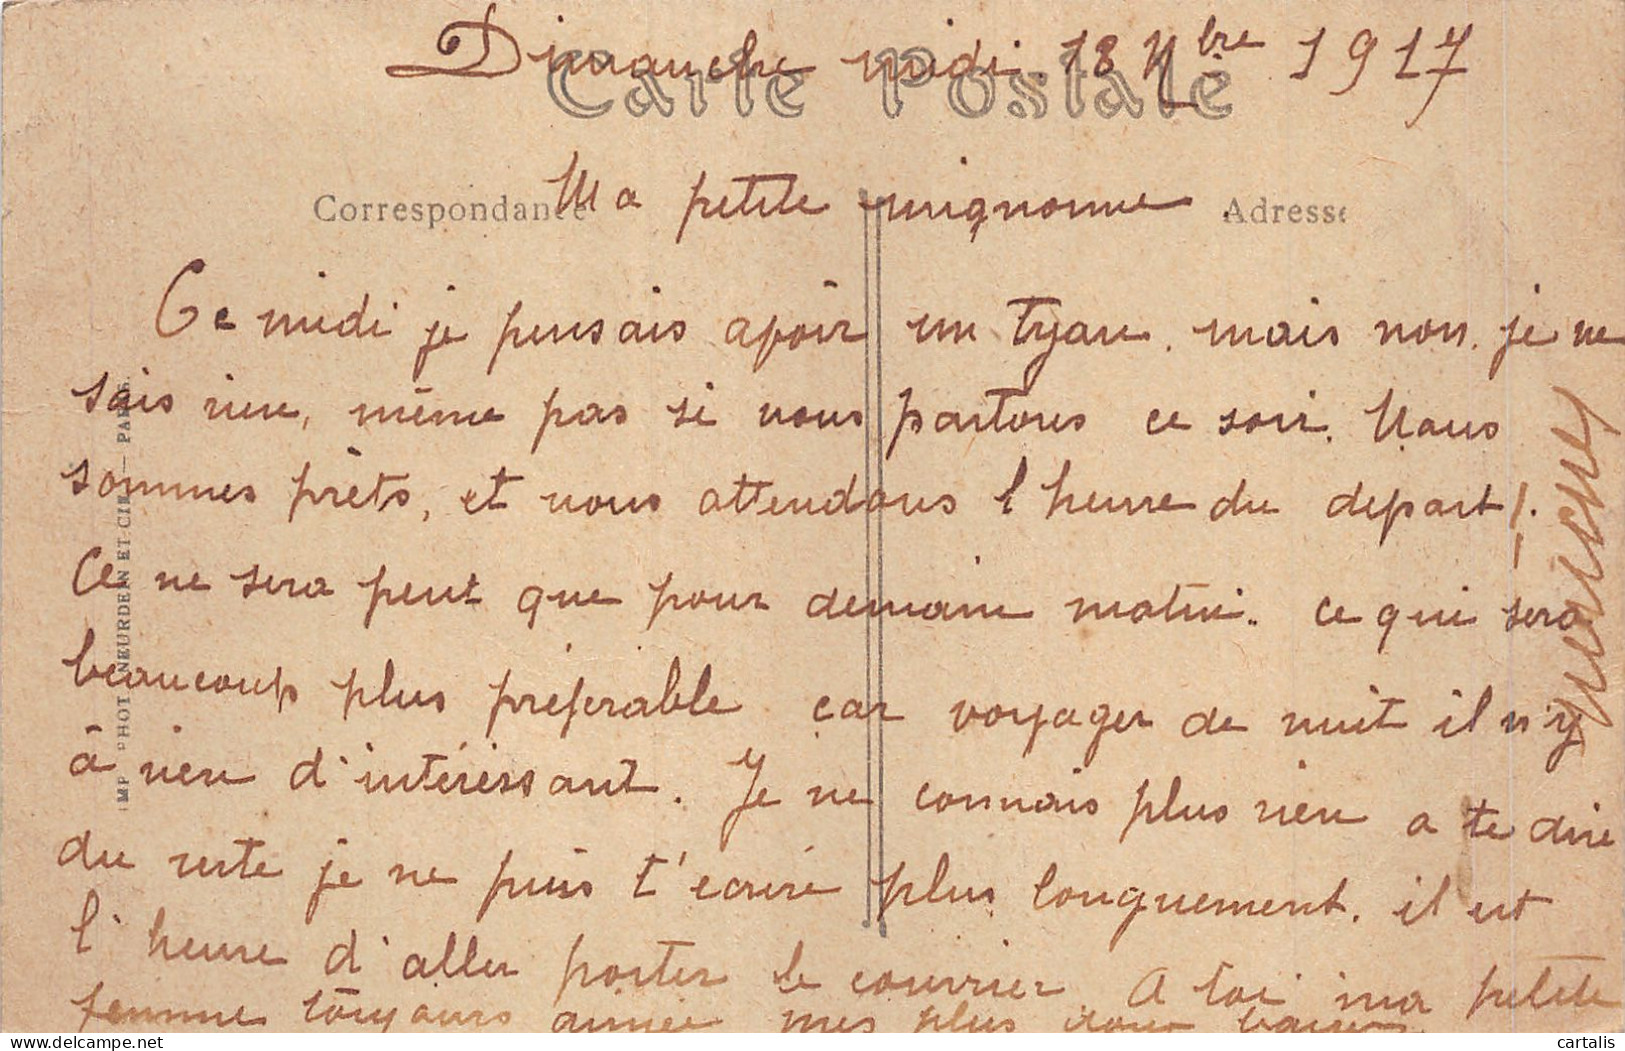 Dimanche midi 18 Nbre 1917
Carte Postale
Correspondance
Ma petite mignonne
Adresse
Ce midi je pensais avoir un tyau. mais non. je ne
sais rien, même pas si nous partons ce soir. Nous
sommes prêts, et nous attendons l'heure du depart!.
Ce ne sera peut que pour demain matin. ce qui sera
beaucoup plus préferable car voyager de nuit il n'y
à rien d'intéressant. Je ne connais plus rien a te dire
du reste je ne puis t'ecrire plus longuement. il est
l'heure d'aller porter le courrier. A toi ma petite
femme toujours aimée mes plus doux baisers
IMP. PHOT. NEURDEIN ET CIE — PARIS.
cartalis